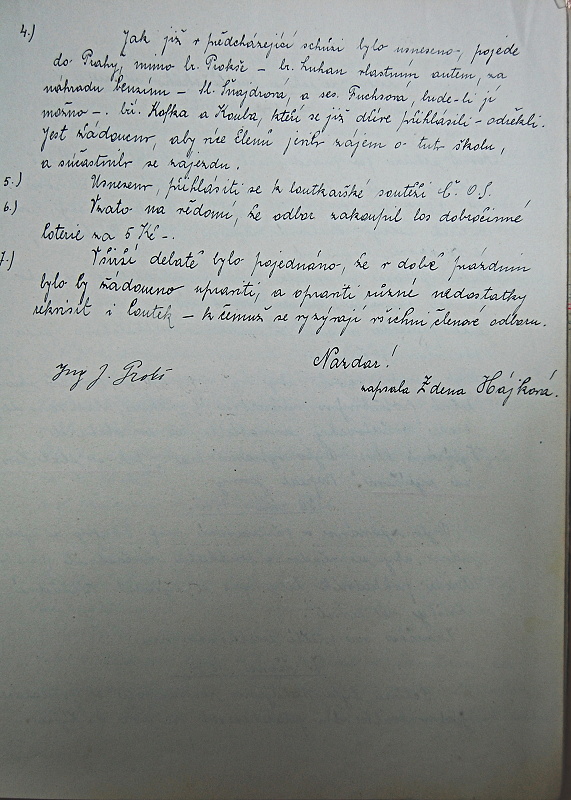 4.) Jak již v předcházející schůzi bylo usneseno, pojede
do Prahy, mimo br. Prokše – br. Luhan vlastním autem, za
náhradu benzinu – sl. Šnajdrova, a ses. Fuchsová, bude-li jí
možno –. bří. Kofka a Kouba, kteří se již dříve přihlásili – odřekli.
Jest žádoucno, aby více členů jevilo zájem o tuto školu,
a súčastnilo se zájezdu.
5.) Usneseno, přihlásiti se k loutkářské soutěži Č. O. S.
6.) Vzato na vědomí, že odbor zakoupil los dobročinné
loterie za 5 Kč –.
7.) V širší debatě bylo pojednáno, že v době prázdnin
bylo by žádoucno upraviti, a opraviti různé nedostatky
rekvisit i loutek – k čemuž se vyzývají všichni členové odboru.
Nazdar!
Ing J. Prokš
zapsala Zdena Hájková.